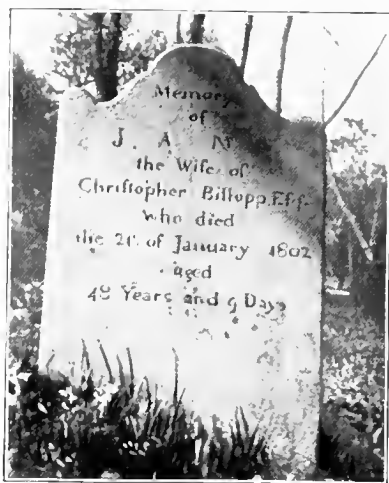 Memory
of
J A N
the Wife of
Christopher Billopp Esq.
who died
the of January 1802
aged
48 Years and 9 Days